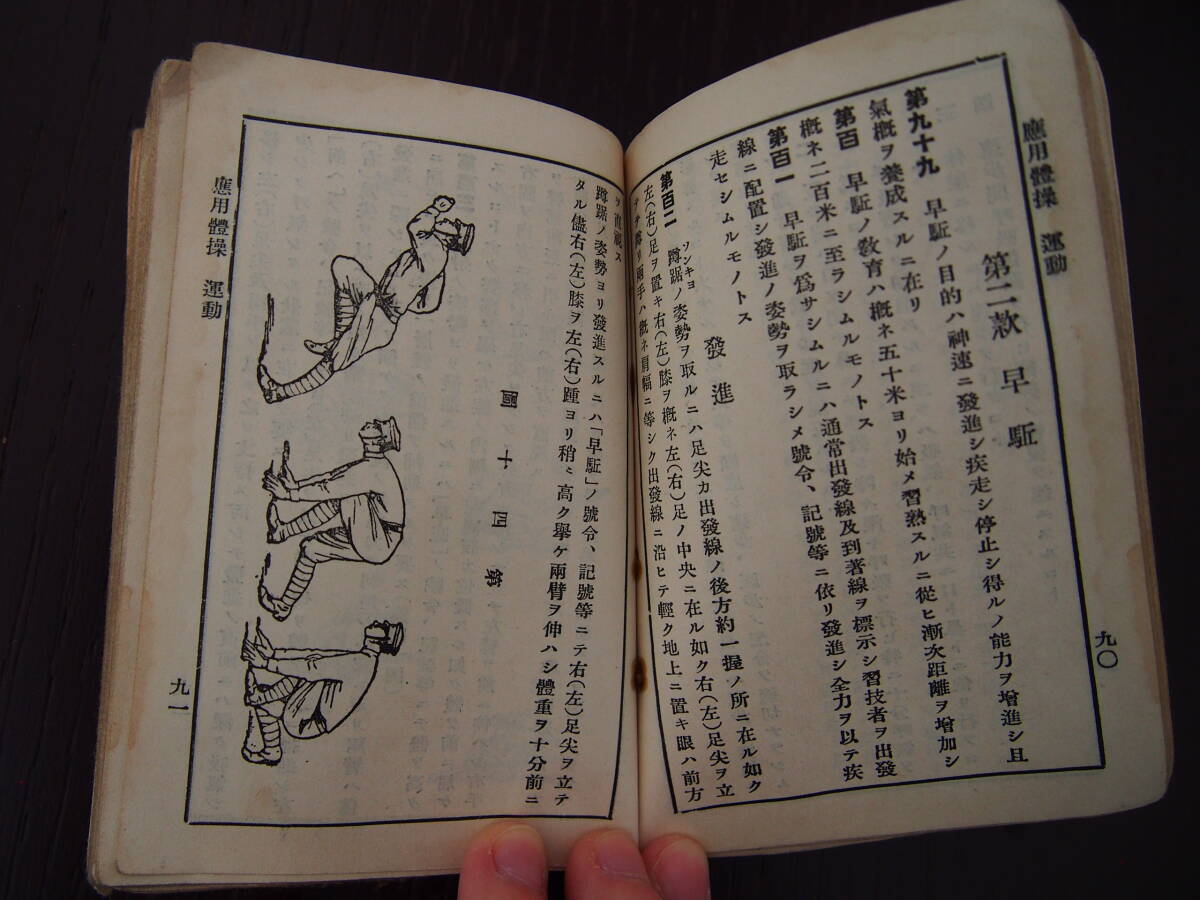 應用體操 運動
九〇
第二款 早駈
第九十九 早駈ノ目的ハ神速ニ發進シ疾走シ停止シ得ルノ能力ヲ增進シ且
氣槪ヲ養成スルニ在リ
第百 早駈ノ敎育ハ槪ネ五十米ヨリ始メ習熟スルニ從ヒ漸次距離ヲ增加シ
槪ネ二百米ニ至ラシムルモノトス
第百一 早駈ヲ爲サシムルニハ通常出發線及到著線ヲ標示シ習技者ヲ出發
線ニ配置シ發進ノ姿勢ヲ取ラシメ號令、記號等ニ依リ發進シ全力ヲ以テ疾
走セシムルモノトス
發進
第百二 蹲踞ノ姿勢ヲ取ルニハ足尖カ出發線ノ後方約一握ノ所ニ在ル如ク
ソンキヨ
左(右)足ヲ置キ右(左)膝ヲ槪ネ左(右)足ノ中央ニ在ル如ク右(左)足尖ヲ立
テヽ蹲リ兩手ハ槪ネ肩幅ニ等シク出發線ニ沿ヒテ輕ク地上ニ置キ眼ハ前方
ヲ直視ス
蹲踞ノ姿勢ヨリ發進スルニハ「早駈」ノ號令、記號等ニテ右(左)足尖ヲ立テ
タル儘右(左)膝ヲ左(右)踵ヨリ稍〻高ク擧ケ兩臂ヲ伸ハシ體重ヲ十分前ニ
圖十四第
應用體操 運動
九一